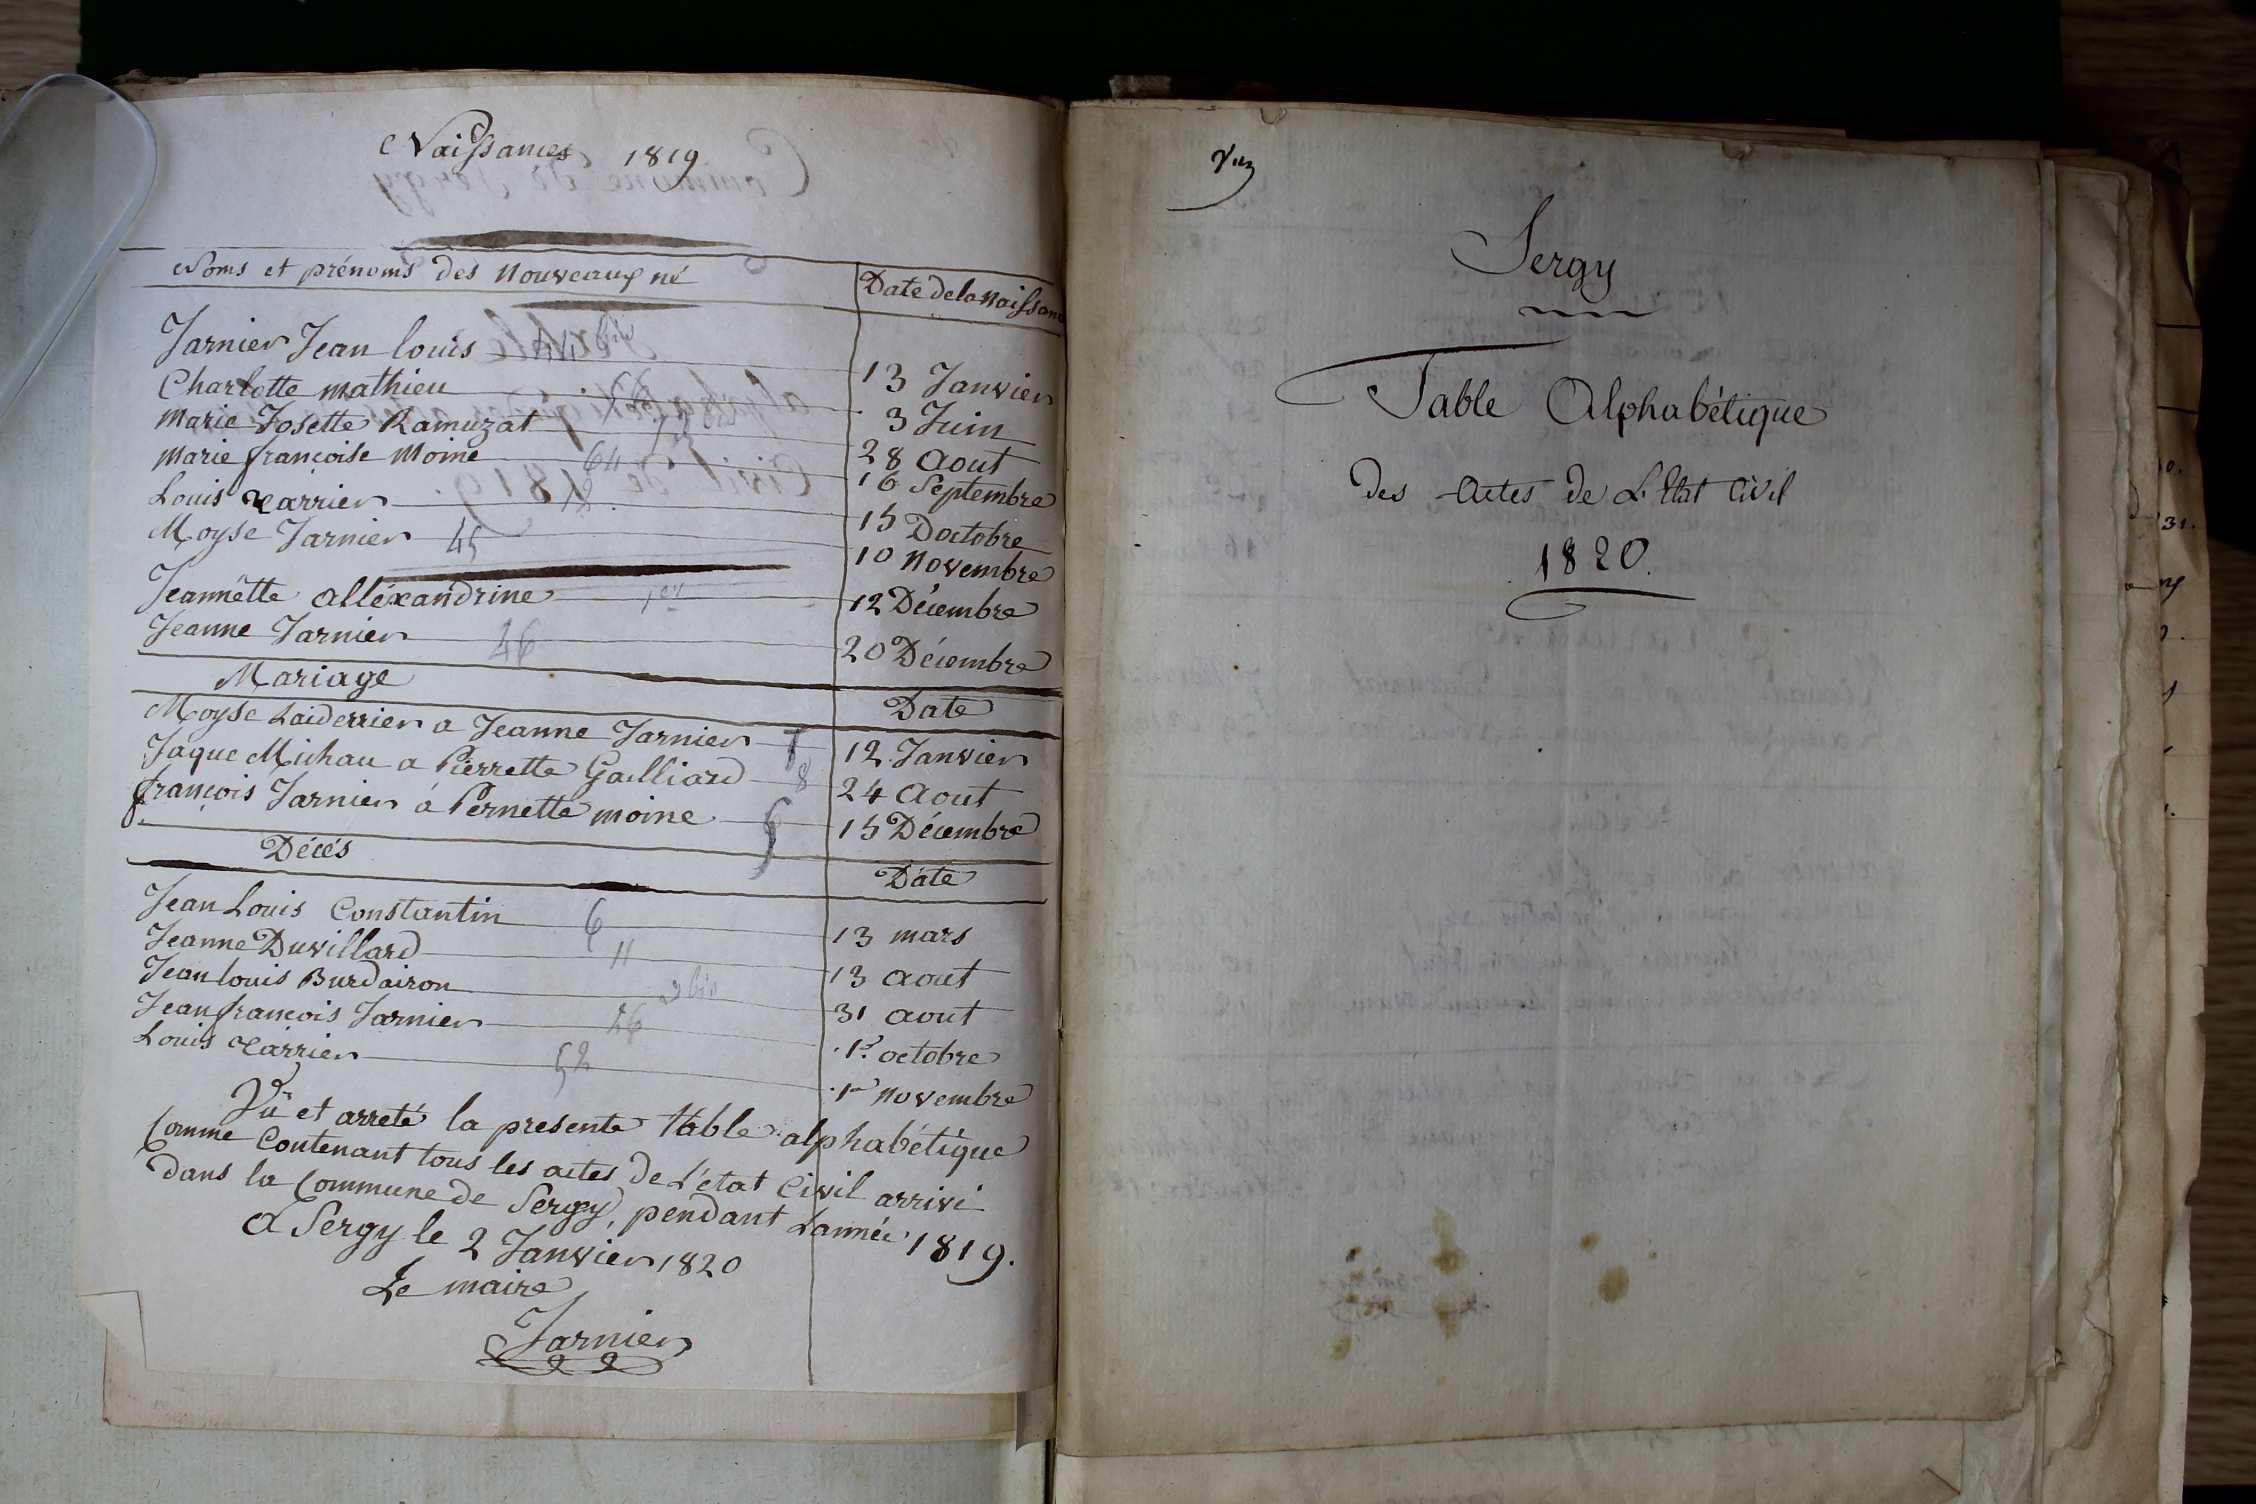 Naissances 1819
Noms et prénoms des Nouveaux né
Date de la Naissance
Jarnier Jean louis
13 Janvier
Charlotte Mathieu
3 Juin
Marie Josette Ramuzat
28 Aout
Marie françoise Moine 64
16 Septembre
Louis Carrier 52
15 Doctobre
Moyse Jarnier 45
10 Novembre
Jeannette Alléxandrine 1er
12 Décembre
Jeanne Jarnier 46
20 Décembre
Mariage
Date
Moyse Laiderrier a Jeanne Jarnier
12 Janvier
Jaque Michau a Pierrette Gailliard 8
24 Aout
françois Jarnier á Pernette moine
15 Décembre
Décés
Date
Jean Louis Constantin 6
13 mars
Jeanne Duvillard 11
13 Aout
Jean louis Burdairon 2 bis
31 Aout
Jean françois Jarnier 26
1er octobre
Louis Carrier 52
1er Novembre
Vû et arreté la presente table alphabétique
Comme Contenant tous les actes de L'état Civil arrivé
dans la Commune de Sergy pendant L'année 1819.
A Sergy le 2 Janvier 1820
Le maire
Jarnier
Sergy
Table Alphabétique
des Actes de L'Etat Civil
1820.